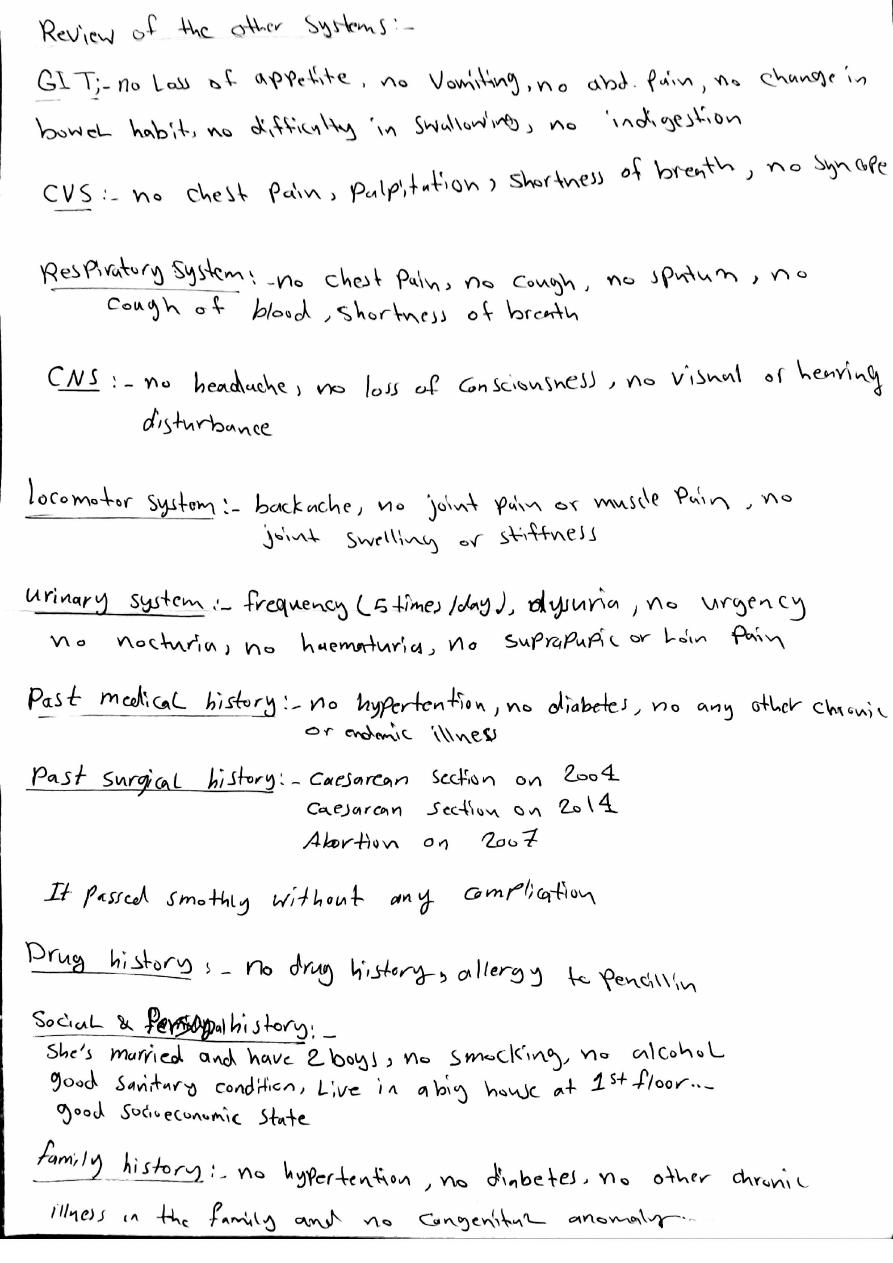 Review of the other systems:-
GIT:- no Loss of appetite, no Vomiting, no abd. Pain, no change in
bowel habit, no difficulty in swallowing, no indigestion
CVS :- no chest Pain, Palpitation, shortness of breath, no syncope
Respiratory system: -no chest Pain, no cough, no sputum, no
cough of blood, shortness of breath
CNS :- no headache, no loss of consciousness, no visual or hearing
disturbance
locomotor system :- backache, no joint pain or muscle Pain, no
joint swelling or stiffness
urinary system :- frequency (5 times/day), dysuria, no urgency
no nocturia, no haematuria, no suprapupic or Loin Pain
Past medical history :- no hypertention, no diabetes, no any other chronic
or endemic illness
Past surgical history :- Caesarean section on 2004
Caesarean section on 2014
Abortion on 2007
It passed smothly without any complication
Drug history :- no drug history, allergy to Pencillin
Social & Personal history :-
She's married and have 2 boys, no smocking, no alcohol
good sanitary condition, Live in a big house at 1st floor...
good socioeconomic state
family history :- no hypertention, no diabetes, no other chronic
illness in the family and no congenital anomaly...